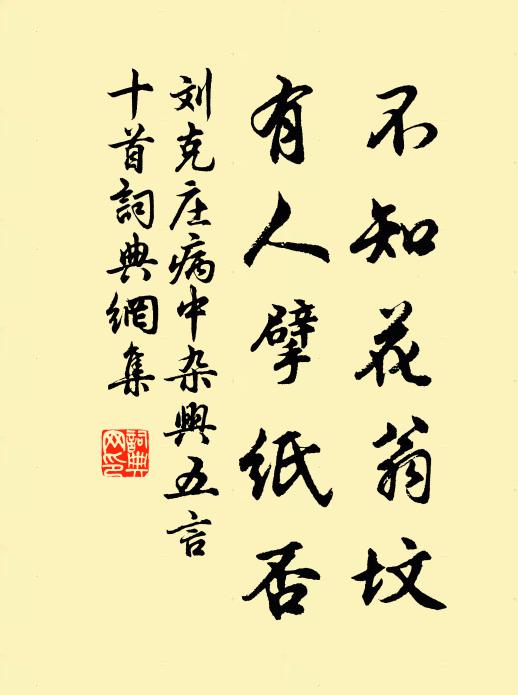 不知花翁坟
有人擘纸否
刘克庄病中杂兴五言
十首词典网集
詞典
网印